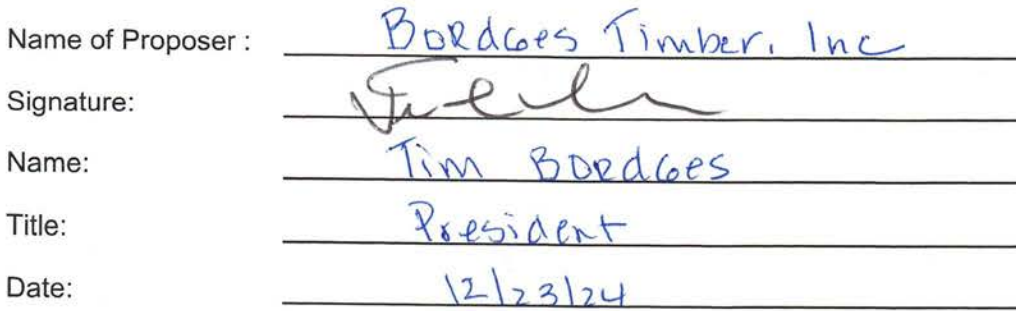 Name of Proposer : Bordges Timber, Inc
Signature:
Name: Tim Bordges
Title: President
Date: 12/23/24